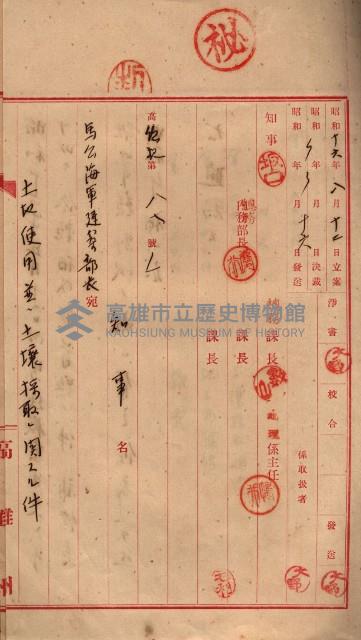 秘
昭和十六年八月十二日立案
昭和〃年〃月〃日決裁
昭和〃年〃月十六日發送
淨書
校合
發送
係取扱者
知事
內務部長
課長
地理係主任
課長
課長
高 第八八號ノ
馬公海軍建築部長宛
知事名
土地使用並ニ土壤採取ニ関スル件
高雄州
高雄市立歷史博物館
KAOHSIUNG MUSEUM OF HISTORY